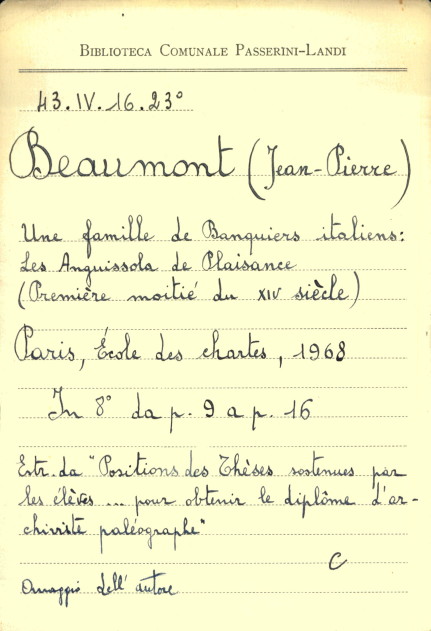 BIBLIOTECA COMUNALE PASSERINI-LANDI
43.IV.16.23°
Beaumont (Jean-Pierre)
Une famille de Banquiers italiens:
Les Anguissola de Plaisance
(Première moitié du XIV siècle)
Paris, École des chartes, 1968
In 8° da p. 9 a p. 16
Estr. da "Positions des Thèses sostenues par
les élèves ... pour obtenir le diplôme d'ar-
chiviste paléographe"
C
Omaggio dell'autore